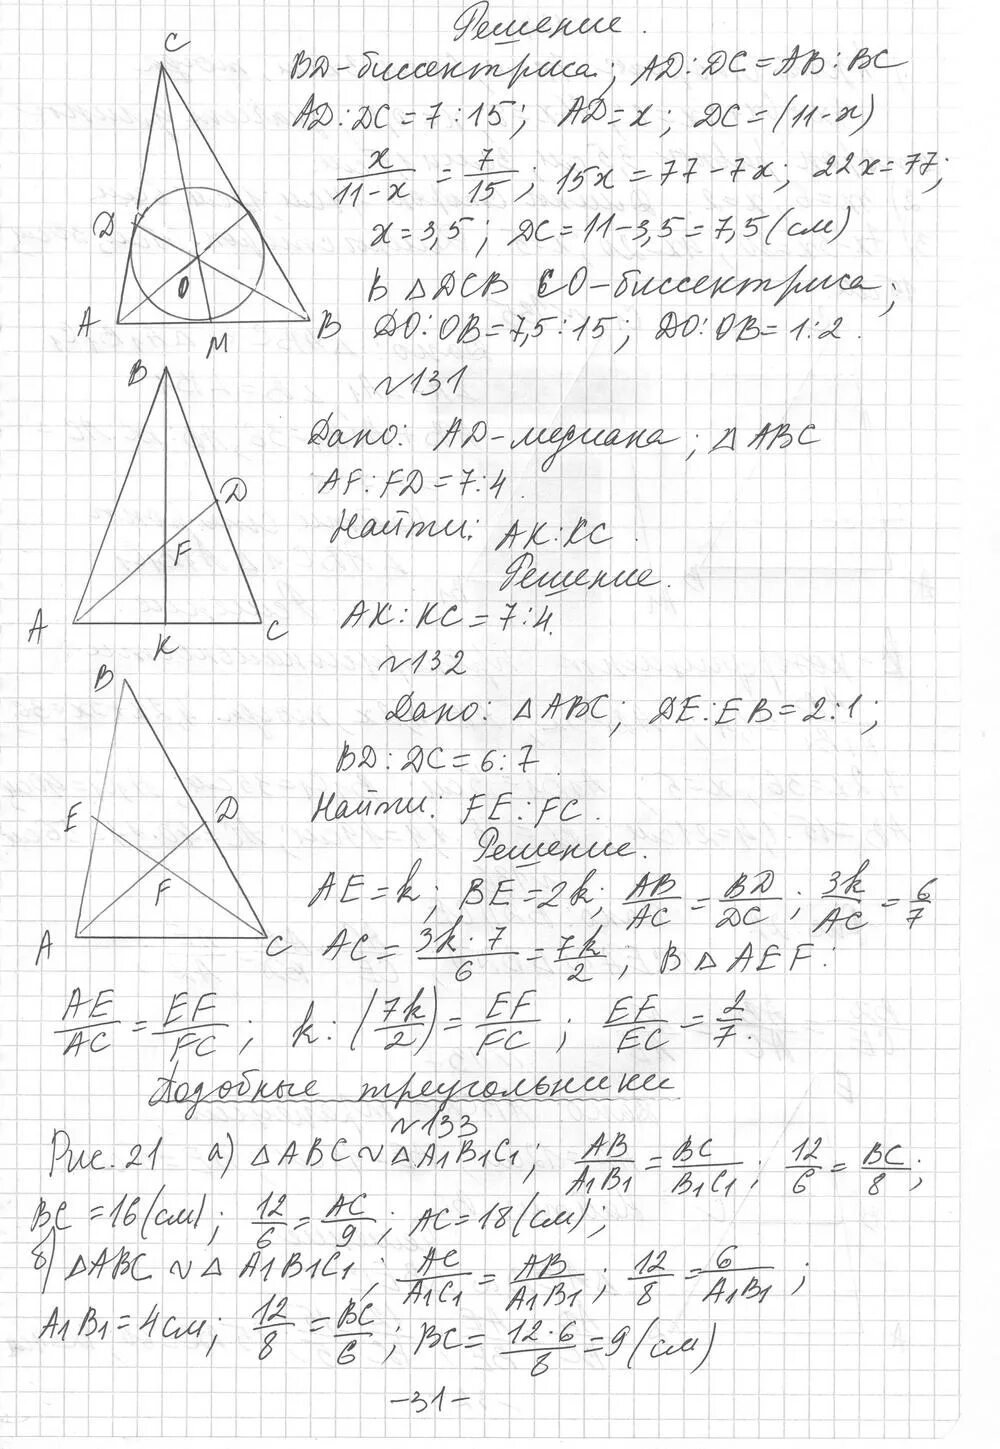 Решение.
BD-биссектриса; AD:DC=AB:BC
AD:DC=7:15; AD=x; DC=(11-x)
x/(11-x) = 7/15; 15x=77-7x; 22x=77;
x=3,5; DC=11-3,5=7,5(см)
В △DCB CO-биссектриса;
DO:OB=7,5:15; DO:OB=1:2.
C
D
O
A
M
B
№131
Дано: AD-медиана; △ABC
AF:FD=7:4.
Найти: AK:KC.
Решение.
AK:KC=7:4.
B
D
F
A
K
C
№132
Дано: △ABC; DE:EB=2:1;
BD:DC=6:7.
Найти: FE:FC.
Решение.
AE=k; BE=2k; AB/AC=BD/DC; 3k/AC=6/7
AC=3k·7/6=7k/2; В △AEF:
B
E
D
F
A
C
AE/AC=EF/FC; k:(7k/2)=EF/FC; EF/EC=2/7.
Подобные треугольники
№133
Рис. 21 а) △ABC ~ △A1B1C1; AB/A1B1=BC/B1C1; 12/6=BC/8;
BC=16(см); 12/6=AC/9; AC=18(см);
б) △ABC ~ △A1B1C1; AC/A1C1=AB/A1B1; 12/8=6/A1B1;
A1B1=4см; 12/8=BC/6; BC=12·6/8=9(см)
-31-